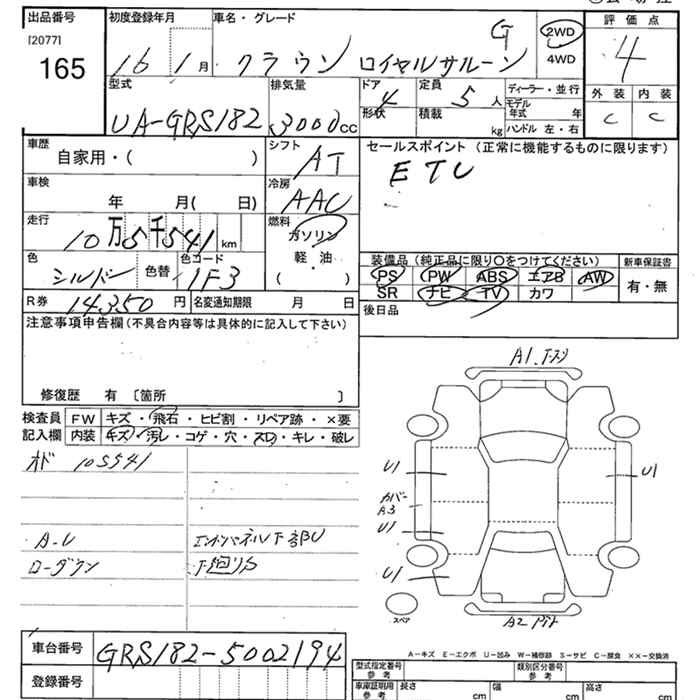 出品番号 初度登録年月 車名・グレード 評価点
[2077]
165
16 1月 クラウン ロイヤルサルーン G 2WD 4
4WD
外装 内装
C C
型式 排気量 ドア 定員 ディーラー・並行
UA-GRS182 3000cc 4 5人 モデル年式 年
形状 積載 kg ハンドル 左・右
車歴 シフト セールスポイント (正常に機能するものに限ります)
自家用・( ) AT ETC
車検 冷房
年 月( 日) AAC
走行 燃料
10万5千541km ガソリン
軽油
・
( )
色 色替 色コード
シルバー 1F3
装備品(純正品に限り○をつけてください) 新車保証書
PS PW ABS エアB AW 有・無
SR ナビ TV カワ
R券 14350円 名変通知期限 月 日
後日品
注意事項申告欄(不具合内容等は具体的に記入して下さい)
修復歴 有 〔箇所 〕
検査員 FW キズ・飛石・ヒビ割・リペア跡・×要
記入欄 内装 キズ・汚レ・コゲ・穴・スレ・キレ・破レ
オド 105541
A-U エンドパネル下部U
ローダウン 下廻りS
A1.
U1 U1
カバー
A3
U1
U1
スペア
A2
A-キズ E-エクボ U-凹み W-補修跡 S-サビ C-腐食 ××-交換済
車台番号 GRS182-5002194
登録番号
型式指定番号 類別区分番号
参考 参考
車庫証明用 長さ 幅 高さ
参考 cm cm cm